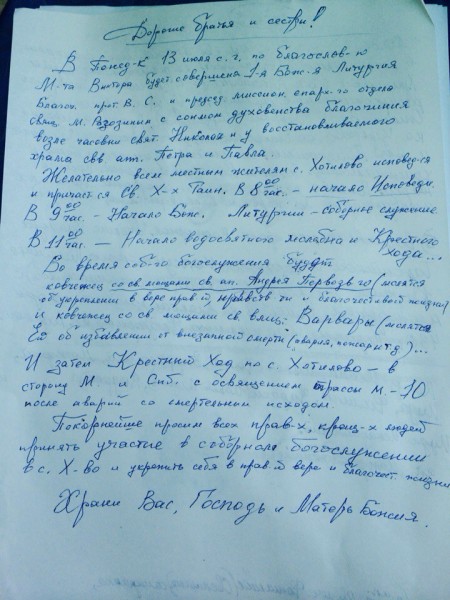 Дорогие братья и сестры!
В Понед-к 13 июля с.г. по благослов-ю
М-та Виктора будет совершена 1-я Бож-я Литургия
Благоч. прот. В. С. и председ. миссион. епарх-го отдела
свящ. М. с сонмом духовенства благочиния
возле часовни свят. Николая и у восстанавливаемого
храма свв ап. Петра и Павла.
Желательно всем местным жителям с. Хотилово исповед-ся
и причаст-ся Св. Х-х Таин. В 8 00 час. - начало Исповеди.
В 9 00 час. - Начало Бож. Литургии - соборное служение.
В 11 00 час. — Начало водосвятного молебна и Крестного
Хода...
Во время соб-го богослужения будут
ковчежец со св. мощами св. ап. Андрея Первозв-го (молятся
об укреплении в вере прав-й, нравств-ти и благочестивой жизни)
и ковчежец со св мощами св влмц. Варвары (молятся
Ей об избавлении от внезапной смерти (аварии, пожара и т.д.)...
И затем Крестный Ход по с. Хотилово - в
сторону М и Спб. с освящением трассы М-10
после аварий со смертельным исходом.
Покорнейше просим всех прав-х, крещ-х людей
принять участие в соборном богослужении
в с. Х-во и укрепить себя в прав-й вере и благочест. жизни
Храни Вас, Господь и Матерь Божия.